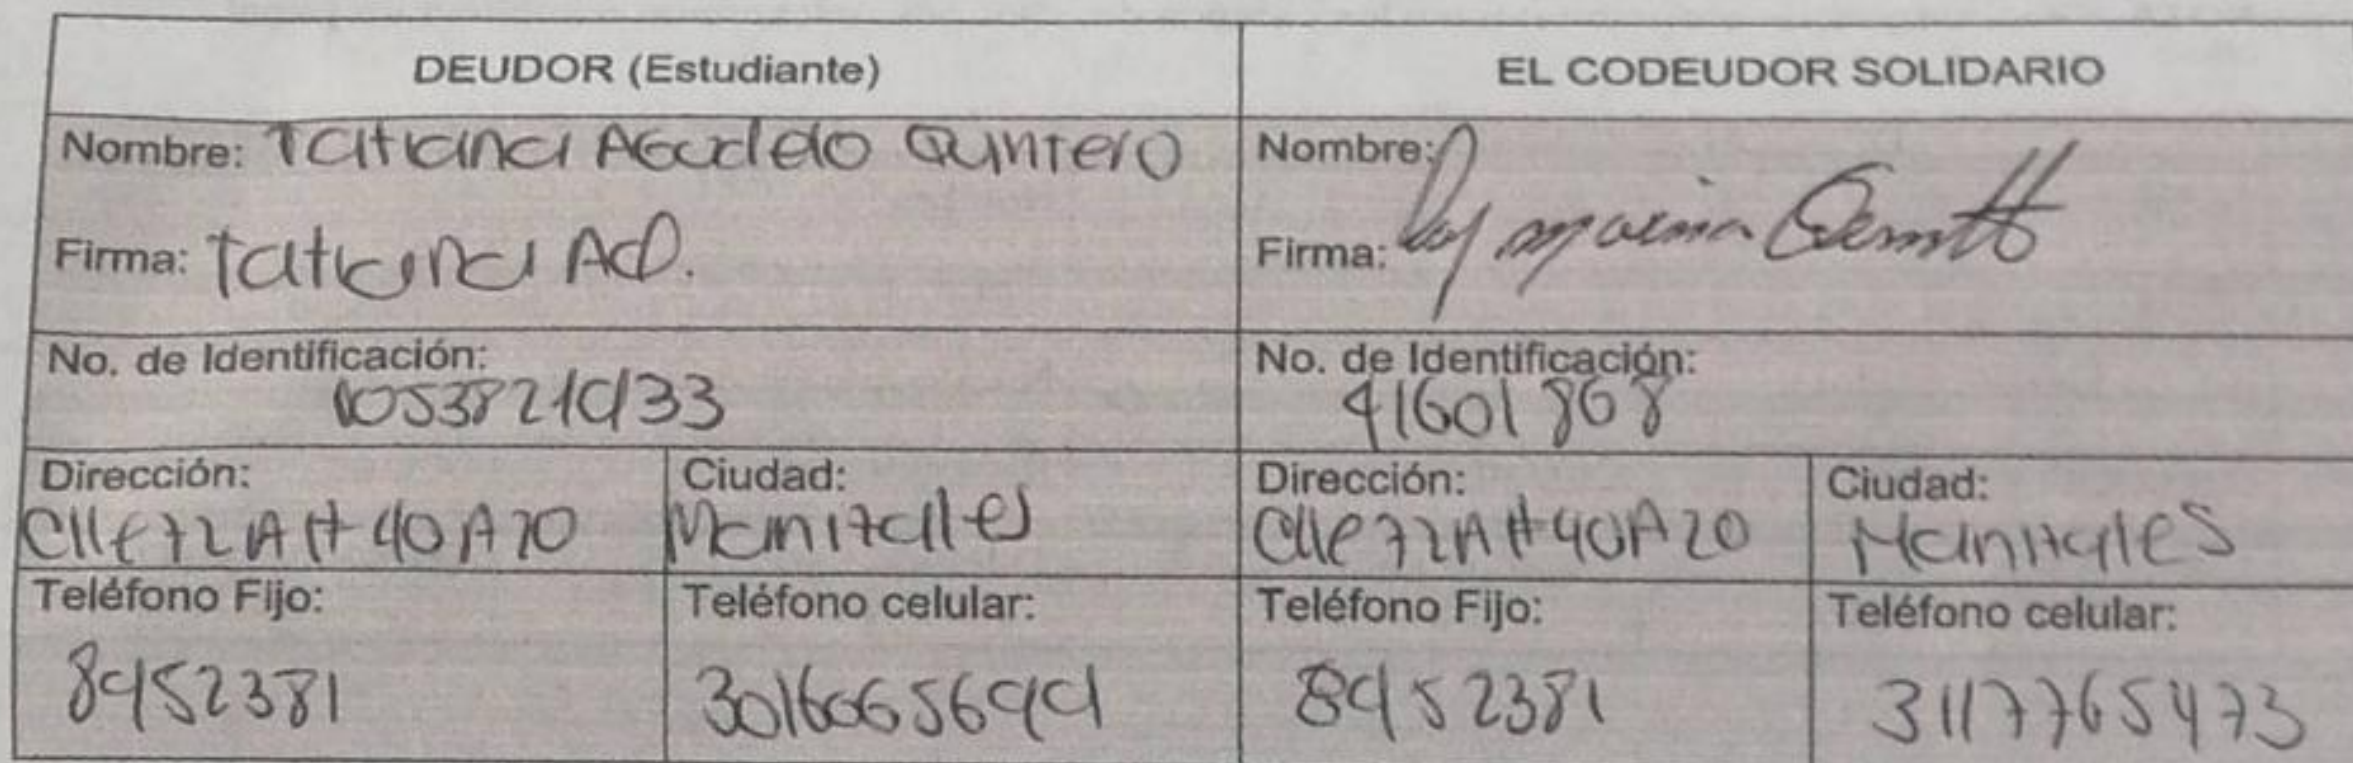 DEUDOR (Estudiante)
EL CODEUDOR SOLIDARIO
Nombre: Tatiana Agudelo Quintero
Firma: Tatiana AO.
Nombre:
Firma:
No. de Identificación:
1053821933
No. de Identificación:
41601868
Dirección:
Clle 72 A # 40 A 20
Ciudad:
Manizales
Dirección:
Clle 72 A # 40 A 20
Ciudad:
Manizales
Teléfono Fijo:
8952381
Teléfono celular:
3016065699
Teléfono Fijo:
8952381
Teléfono celular:
3117765473